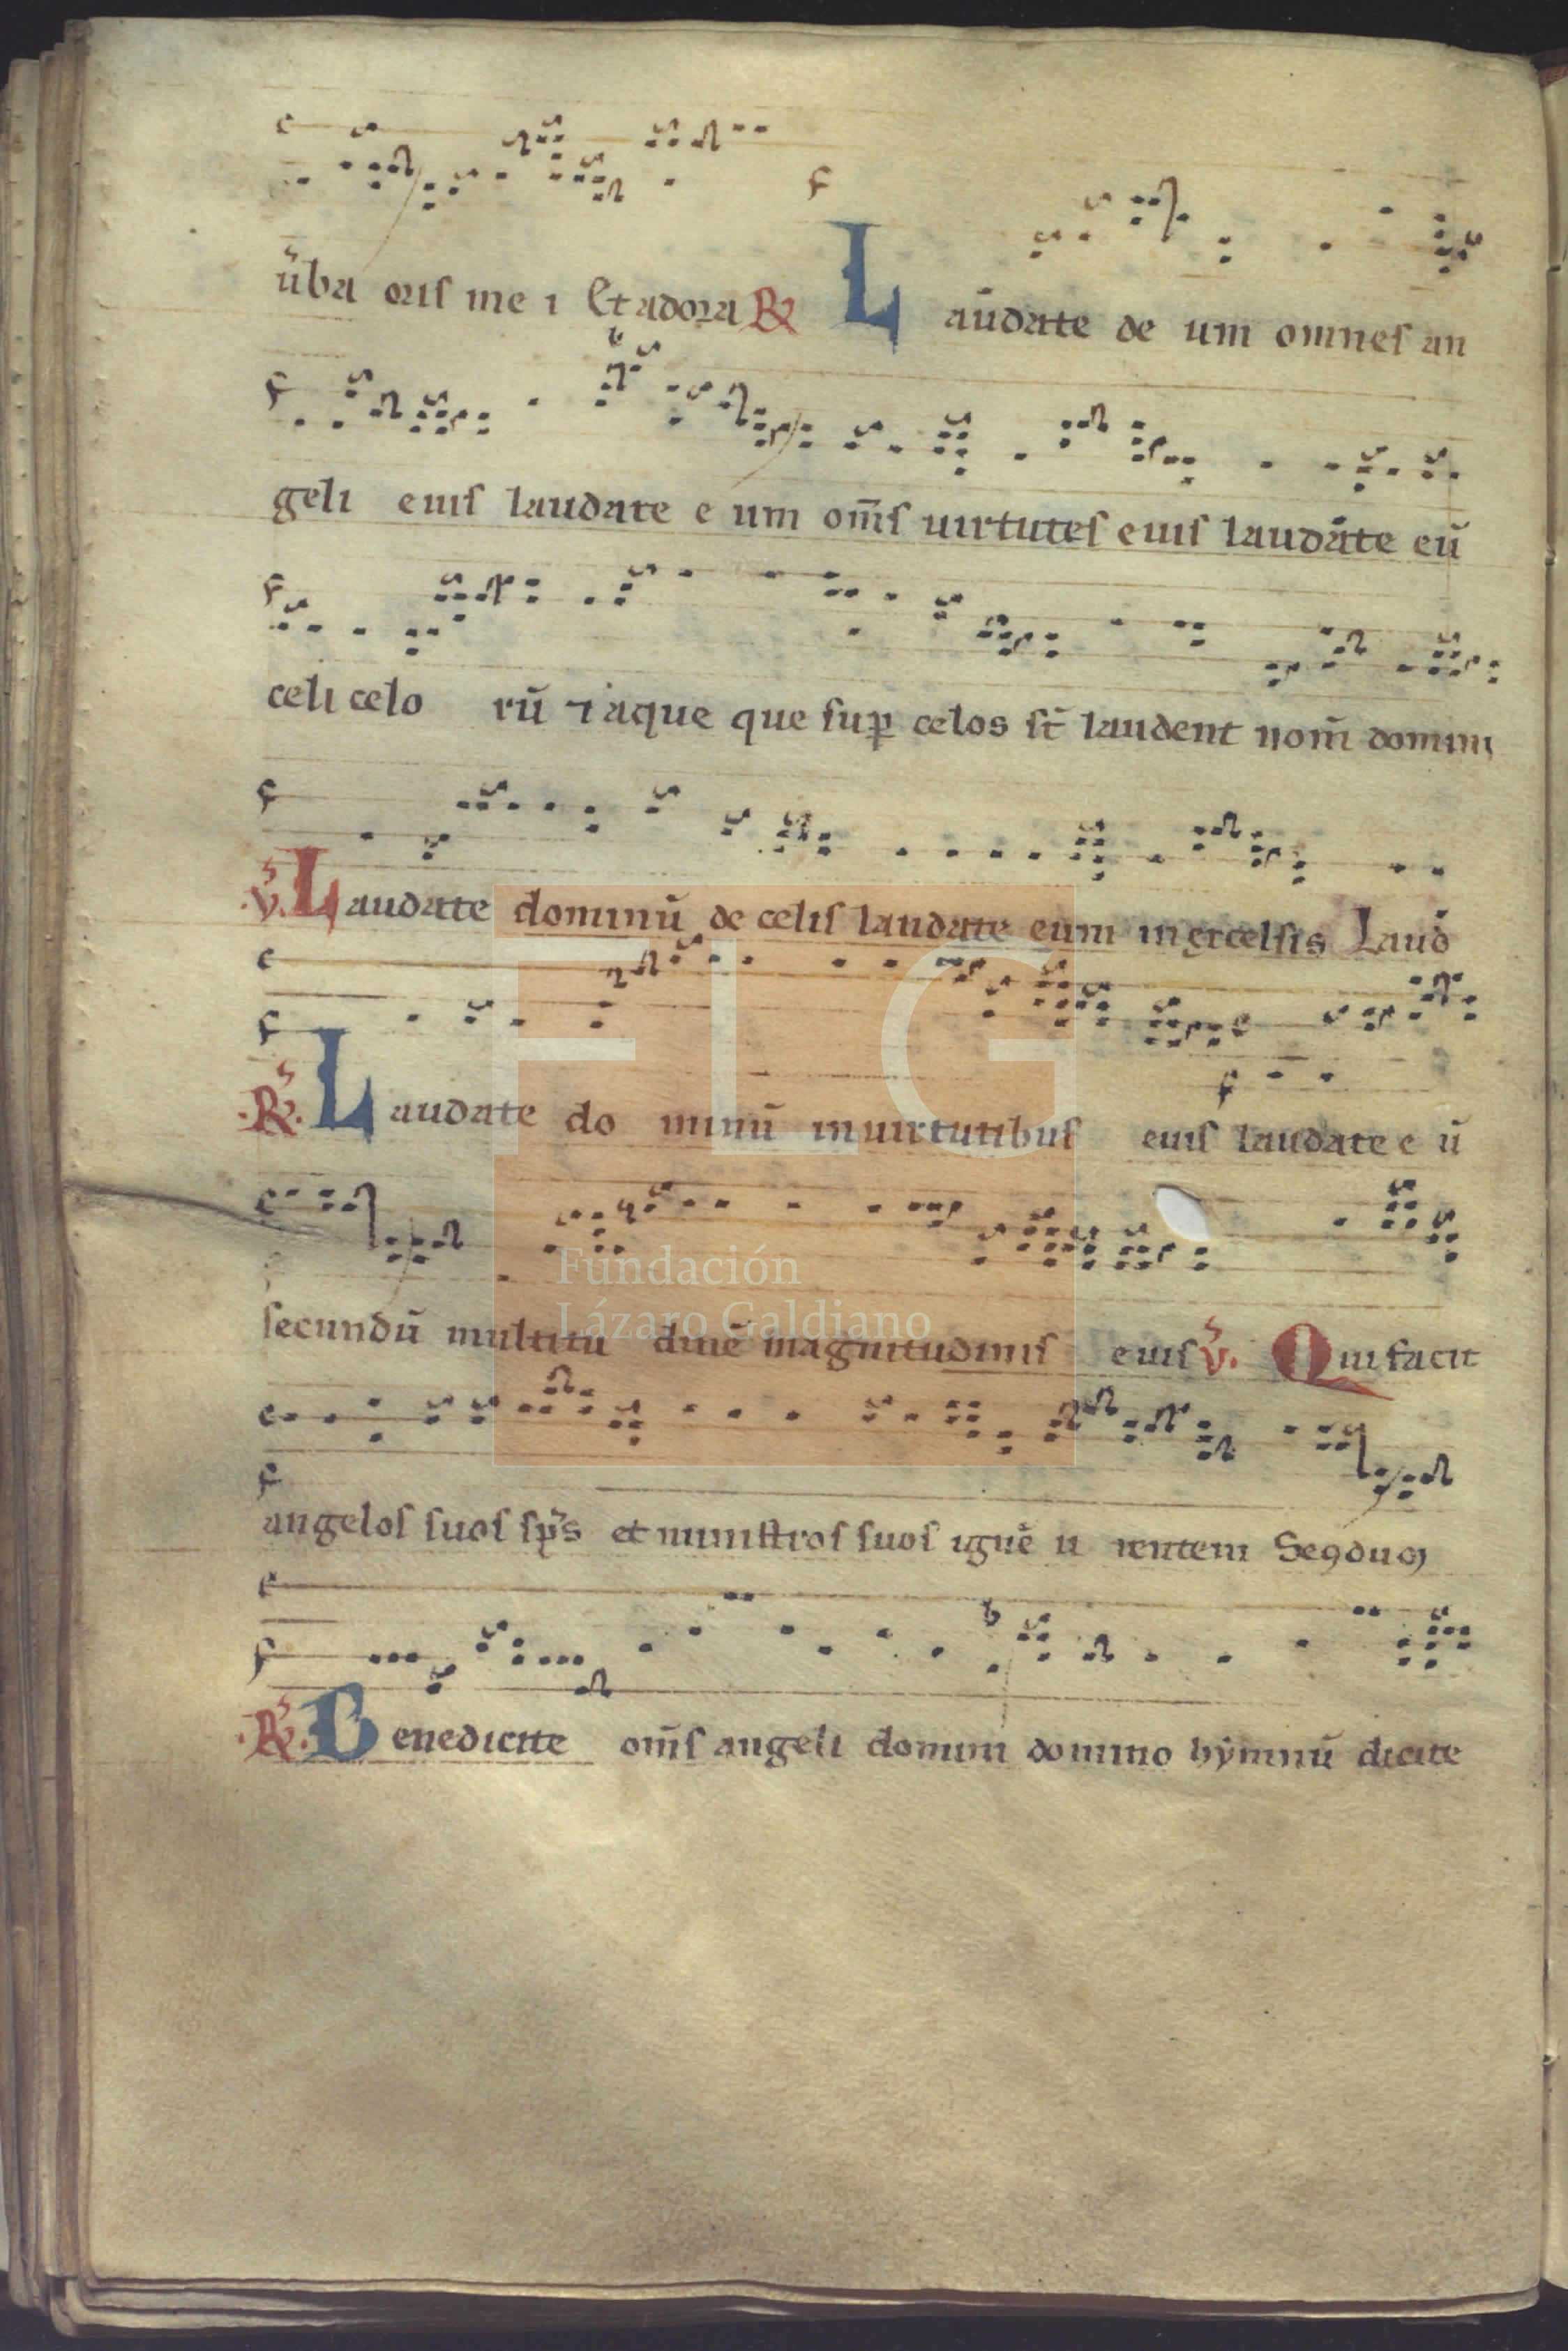 ūba oris me i Et adora R Laudate de um omnes an
geli eius laudate e um om̄s uirtutes eius laudate eū
celi celo rū ⁊ aque que sup celos st̄ laudent nom̄ domini
V. Laudate dominū de celis laudate eum in excelsis Laud
R. Laudate do minū in uirtutibus eius laudate e ū
secundū multitu dinē magnitudinis eius V. Qui facit
angelos suos sp̄s et ministros suos ignē u rentem Secduȝ
R. Benedicite om̄s angeli domini domino hẏmnū dicite
FLG
Fundación
Lázaro Galdiano